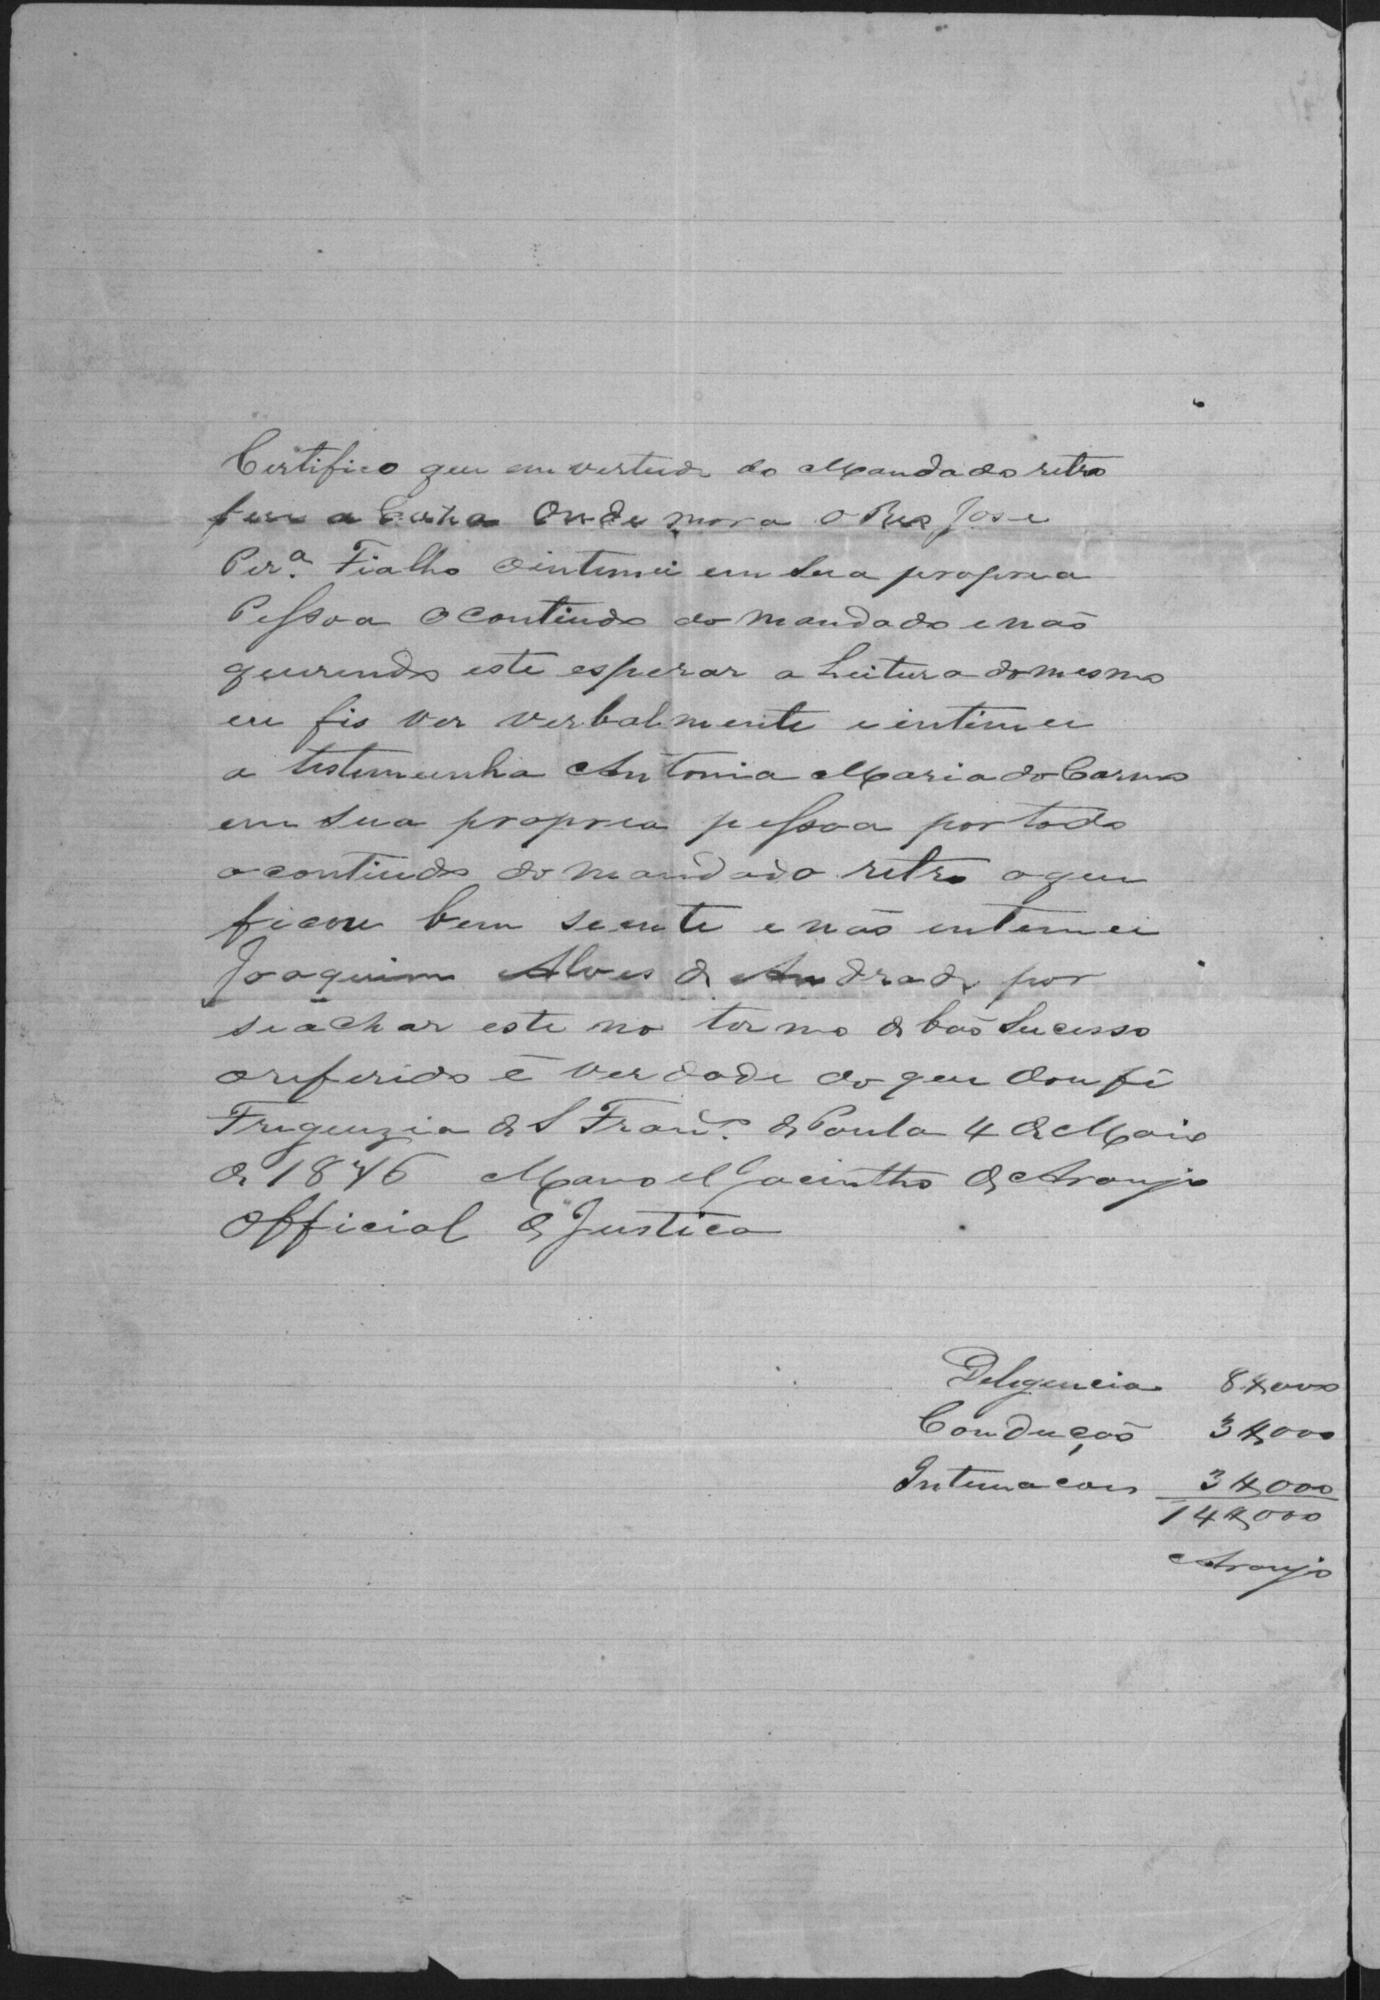 Certifico que em vertude do Mandado retro
fui a Caza Onde mora o Reo Jose
Per.ª Fialho ointimei em Sua propria
Pessoa o contiudo do mandado e não
querendo este esperar a Leitura do mesmo
eu fis ver verbalmente e intimei
a testemunha Antonia Maria do Carmo
em sua propria pessoa por todo
o contiudo do mandado retro o que
ficou bem siente e não intemei
Joaquim Alves de Andrade por
se achar este no termo de bão Sucesso
o referido é verdade do que dou fé
Freguezia de S Fran.co de Paula 4 de Maio
de 1896 Manoel Jacintho de Araujo
Official de Justica
Deligencia 8$000
Condução 3$000
Intimacois 3$000
14$000
Araujo